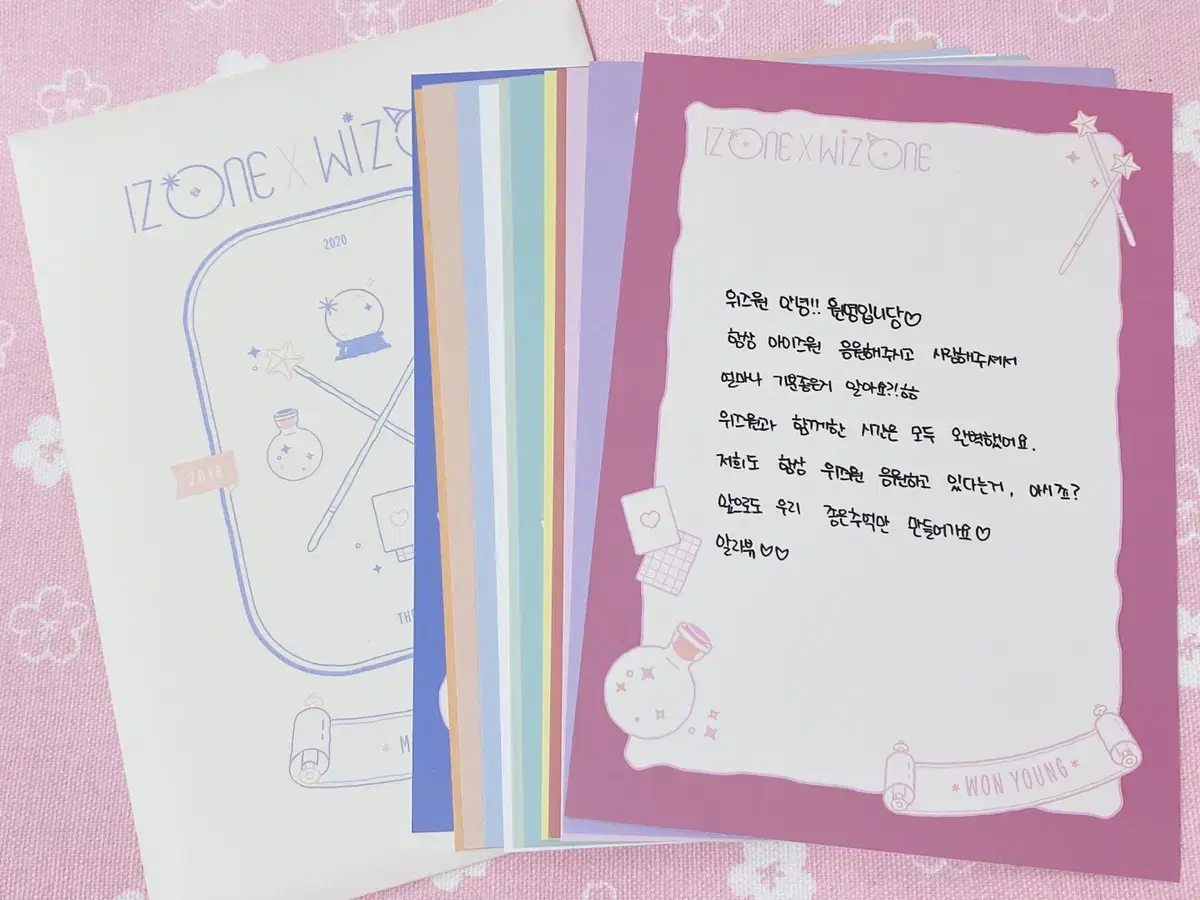 IZ*ONE X WIZ*O
2020
2018
TH
* M
IZ*ONE X WIZ*ONE
위즈원 안녕!! 원영입니당♡
항상 아이즈원 응원해주시고 사랑해주셔서
얼마나 기분좋은지 알아요?!ㅎㅎ
위즈원과 함께한 시간은 모두 완벽했어요.
저희도 항상 위즈원 응원하고 있다는거, 아시죠?
앞으로도 우리 좋은추억만 만들어가요♡
알라뷰♡♡
*WON YOUNG*